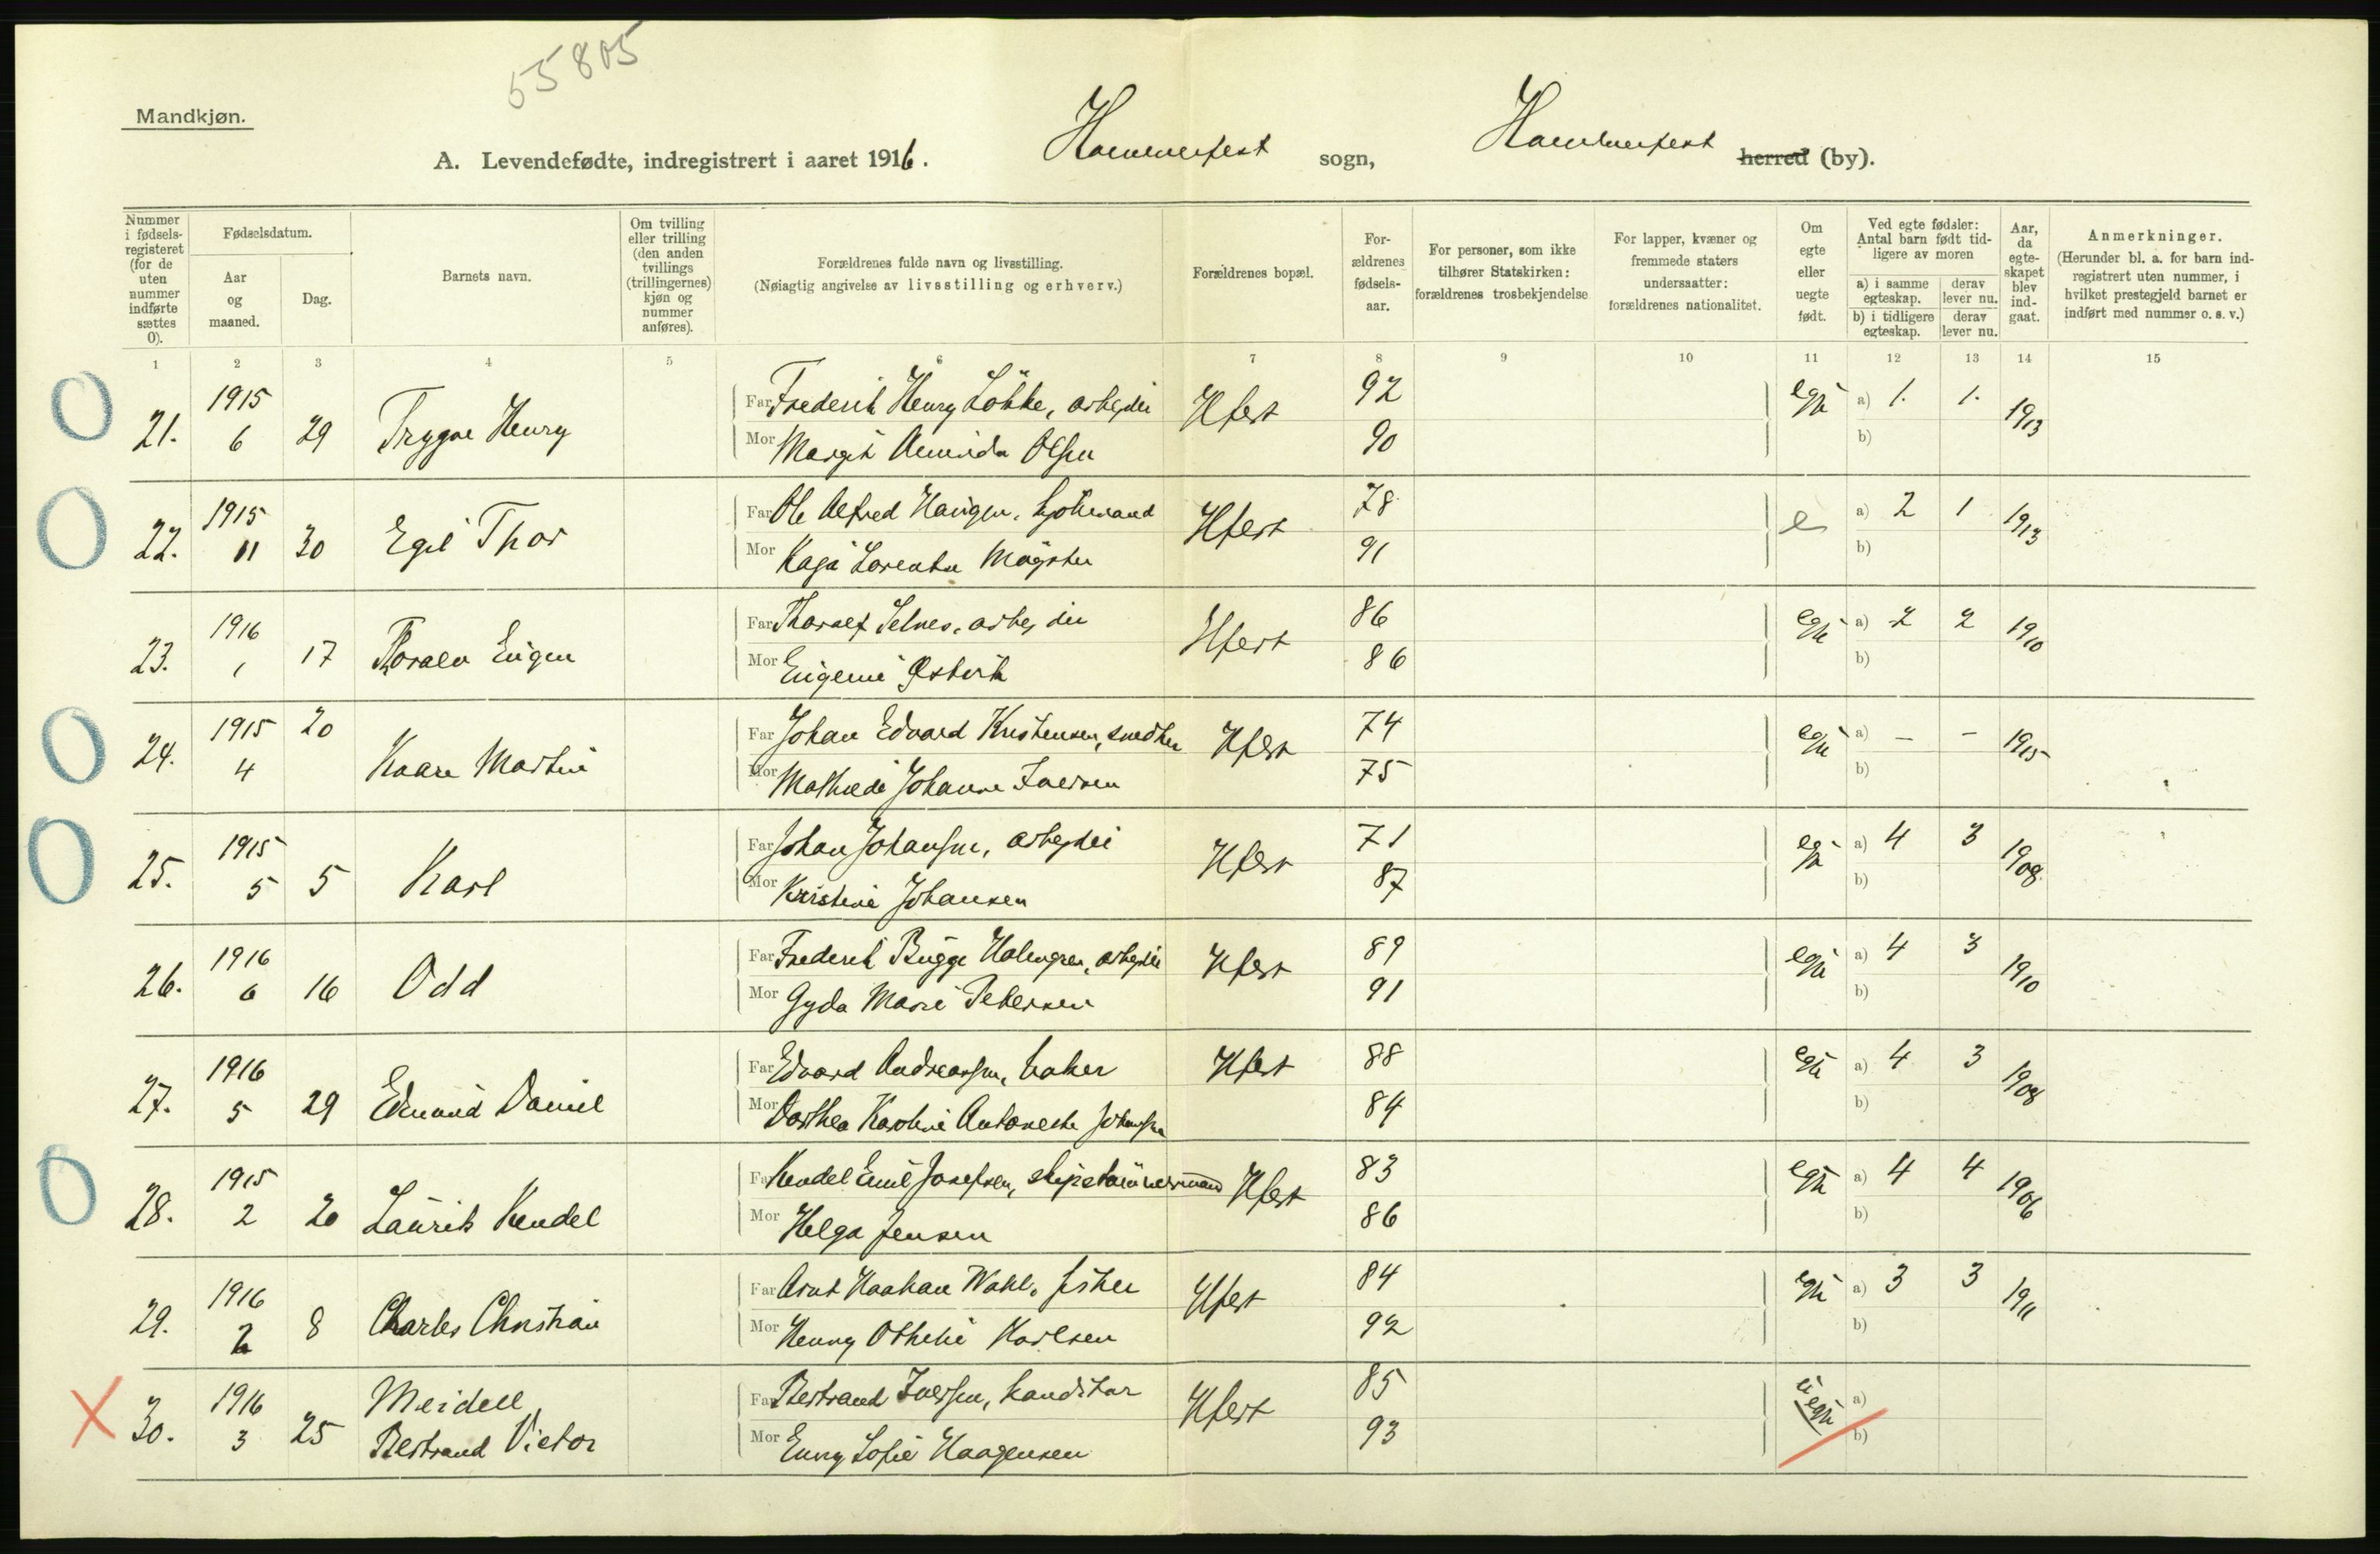 55805
Mandkjøn.
A. Levendefødte, indregistrert i aaret 1916. Hammerfest sogn, Hammerfest herred (by).
Nummer i fødselsregisteret (for de uten nummer indførte sættes 0).
Fødselsdatum.
Aar og maaned.
Dag.
Barnets navn.
Om tvilling eller trilling (den anden tvillings (trillingernes) kjøn og nummer anføres).
Forældrenes fulde navn og livsstilling.
(Nøiagtig angivelse av livsstilling og erhverv.)
Forældrenes bopæl.
Forældrenes fødselsaar.
For personer, som ikke tilhører Statskirken: forældrenes trosbekjendelse
For lapper, kvæner og fremmede staters undersaatter: forældrenes nationalitet.
Om egte eller uegte født.
Ved egte fødsler: Antal barn født tidligere av moren
a) i samme egteskap.
derav lever nu.
b) i tidligere egteskap.
derav lever nu.
Aar, da egteskapet blev indgaat.
Anmerkninger.
(Herunder bl. a. for barn indregistrert uten nummer, i hvilket prestegjeld barnet er indført med nummer o. s. v.)
1 2 3 4 5 6 7 8 9 10 11 12 13 14 15
0 21. 1915 6 29 Trygve Henry Far Frederik Henry Løkke, arbeider Hfest 92 egte a) 1. 1. 1913
Mor Margit Olsen 90 b)
0 22. 1915 11 30 Egil Thor Far Ole Alfred Hansen, sjømand Hfest 78 e a) 2 1 1913
Mor Kaja 91 b)
23. 1916 1 17 Eugen Far Selnes, arbeider Hfest 86 egte a) 2 2 1910
Mor 86 b)
0 24. 1915 4 20 Kaare Martin Far Johan Edvard Kristensen, Hfest 74 egte a) – – 1915
Mor Johanne Iversen 75 b)
0 25. 1915 5 5 Karl Far Johan Johansen, arbeider Hfest 71 egte a) 4 3 1908
Mor Kristine Johansen 87 b)
26. 1916 6 16 Odd Far Frederik Bugge Holmgren, arbeider Hfest 89 egte a) 4 3 1910
Mor Gyda Marie Petersen 91 b)
27. 1916 5 29 Edmund Daniel Far Edvard Andreassen, baker Hfest 88 egte a) 4 3 1908
Mor Dorthea Karoline Antonette Johansen 84 b)
0 28. 1915 2 20 Laurits Kendel Far Kendel Emil Josefsen, skipstømmermand Hfest 83 egte a) 4 4 1906
Mor Helga Jensen 86 b)
29. 1916 2 8 Charles Christian Far Arnt Haakon Wahl, fisker Hfest 84 egte a) 3 3 1911
Mor Henny Karlsen 92 b)
X 30. 1916 3 25 Meidell Far Bertrand Iversen, konditor Hfest 85 uegte a)
Bertrand Victor Mor Enny Sofie Haagensen 93 b)